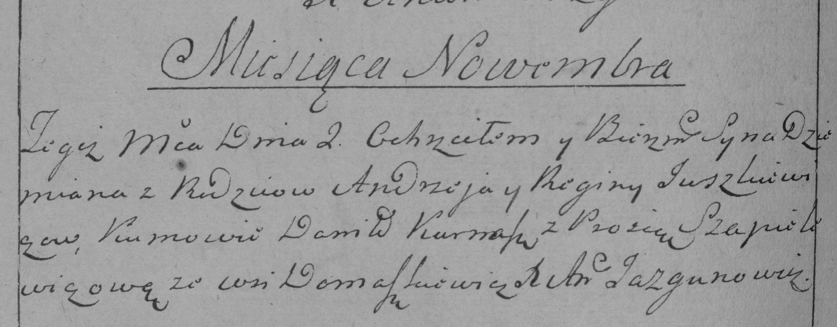 Miesiąca Nowembra
Tegoż Mca Dnia 2. Ochrzciłem y Bierzm Syna Dzie
miana z Rodzicow Andrzeja y Reginy Juszkiewi
czow, Kumowie Daniło z Prosią Szapiele
wiczową ze wsi Domaszkiewicz X An Jazgunowicz.